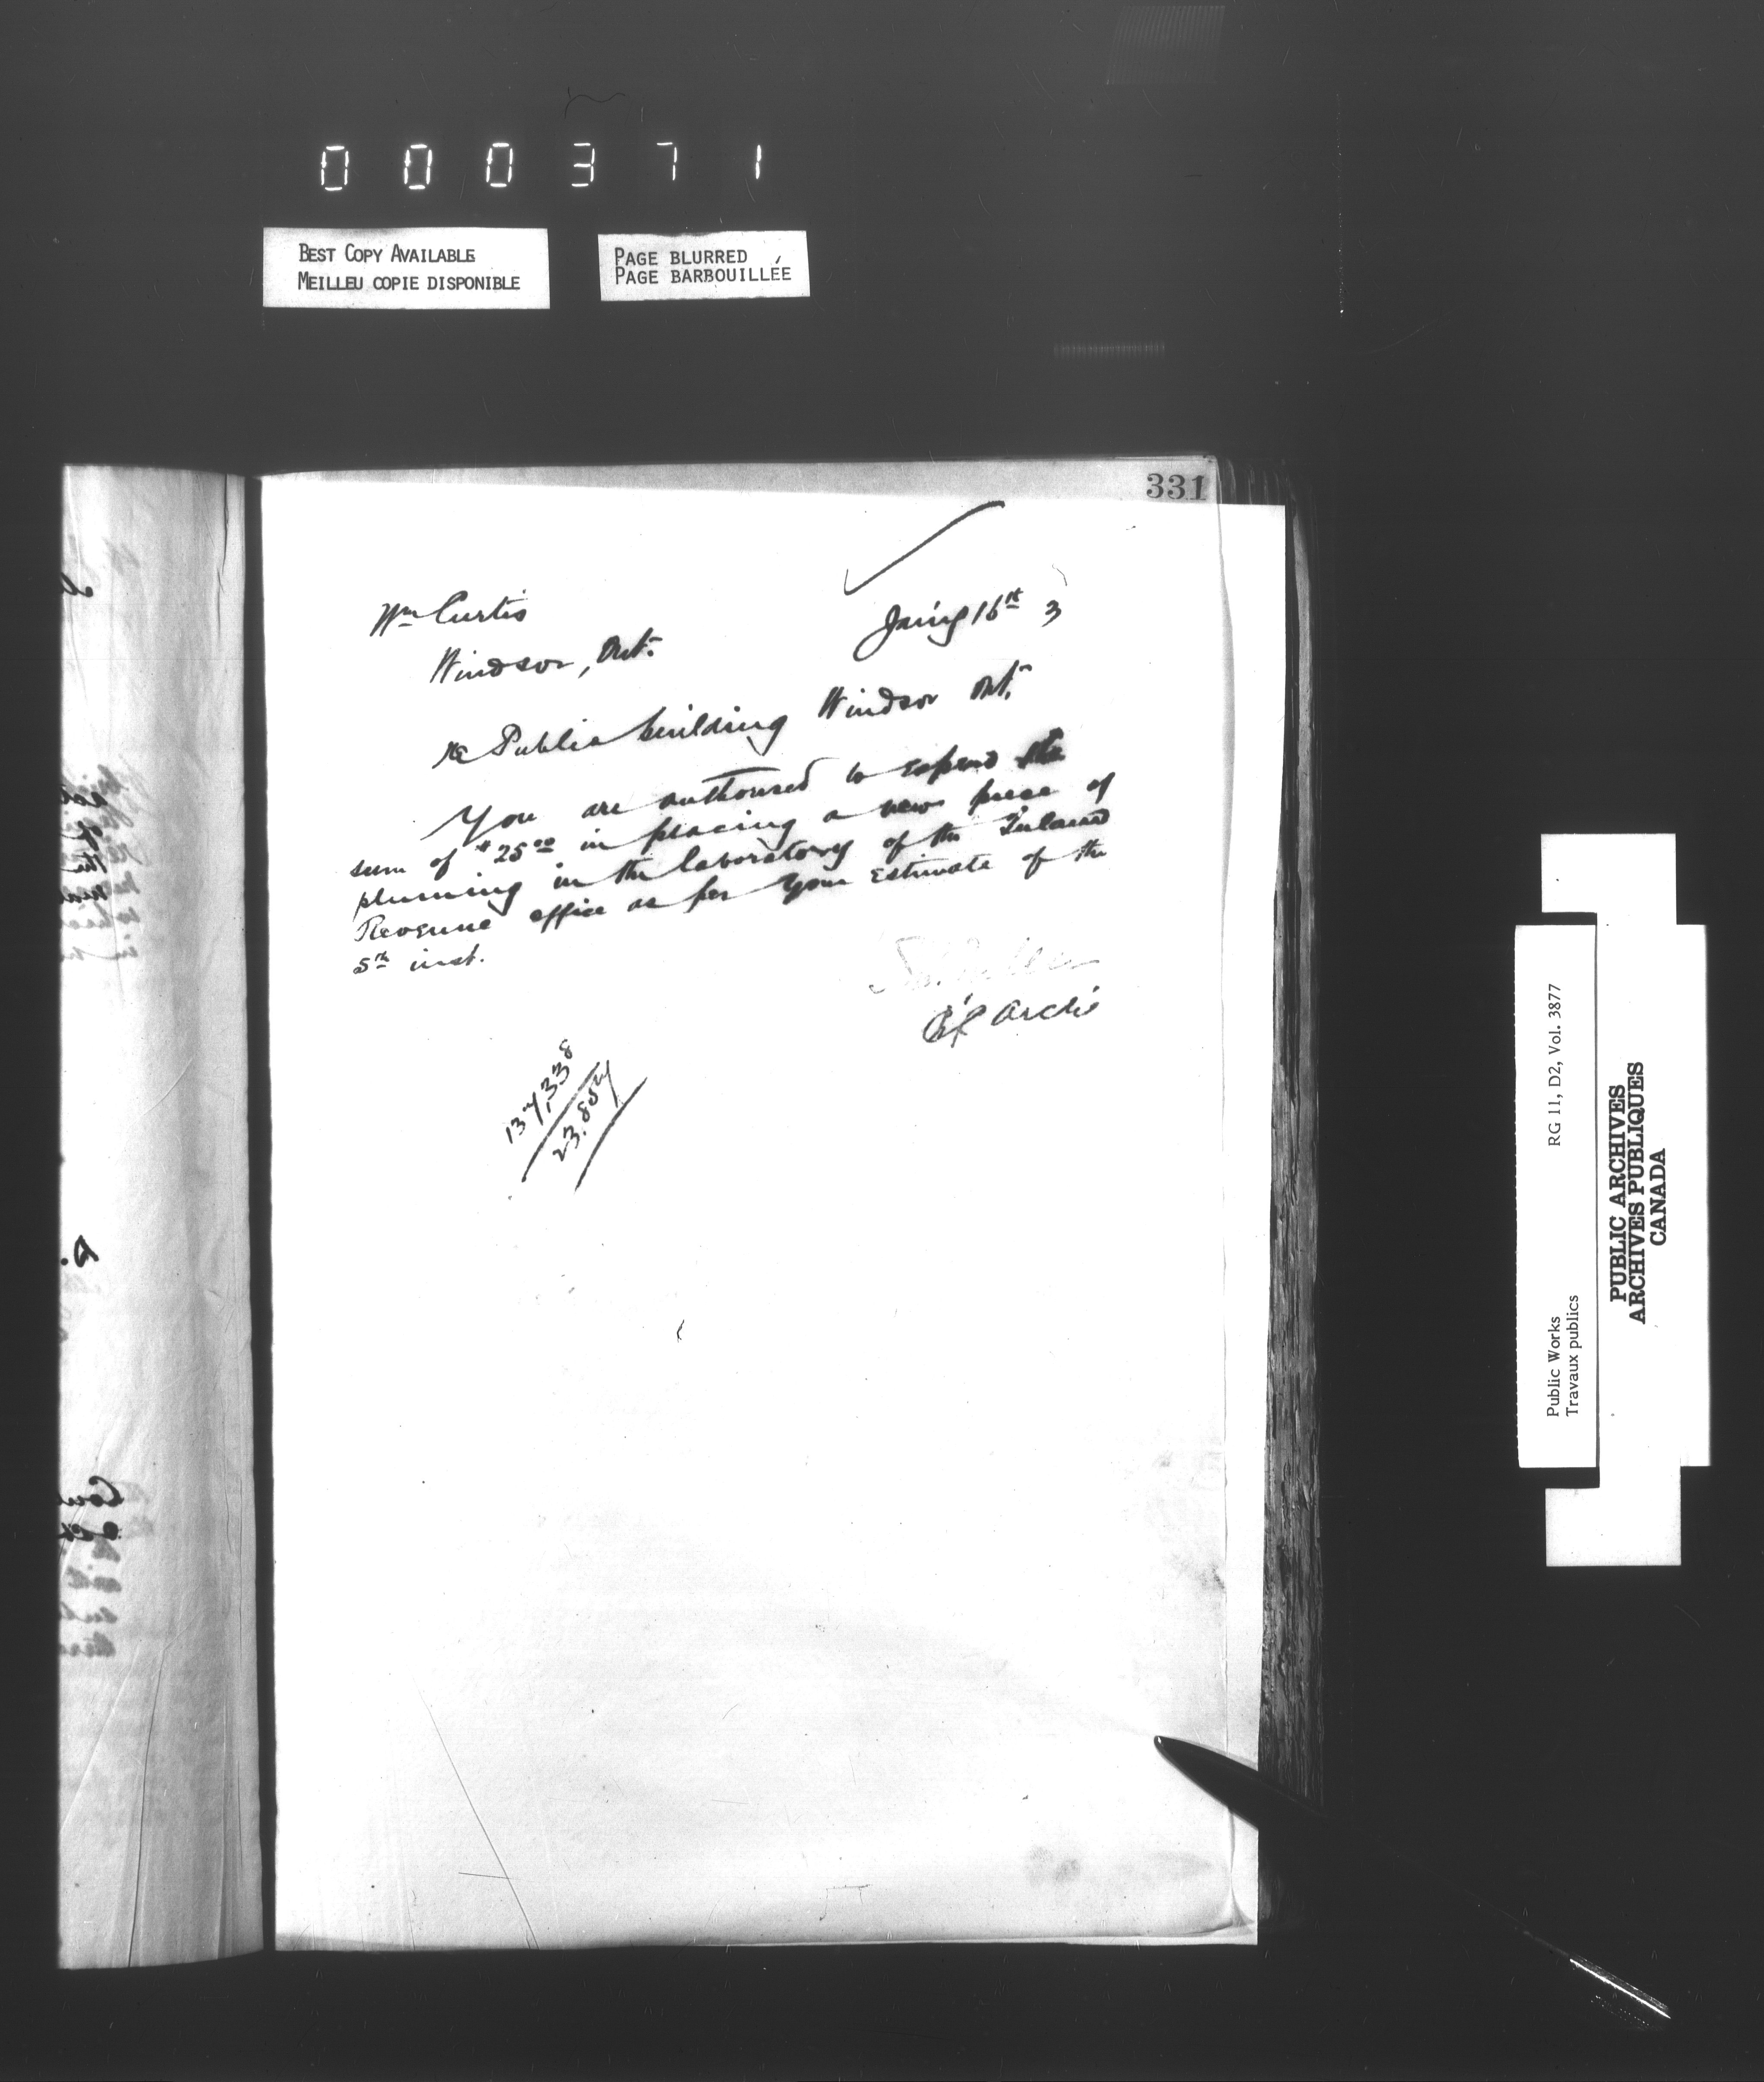 000371
BEST COPY AVAILABLE
MEILLEU COPIE DISPONIBLE
PAGE BLURRED
PAGE BARBOUILLÉE
331
Wm Curtis
Windsor, Ont.
Jan'y 16th 3
re Public building Windsor Ont.
You are authorised to expend the
sum of $25.00 in placing a new piece of
plumming in the laboratory of the Inland
Revenue office as per your Estimate of the
5th inst.
Archt
137,338
23.854
Public Works
Travaux publics
RG 11, D2, Vol. 3877
PUBLIC ARCHIVES
ARCHIVES PUBLIQUES
CANADA